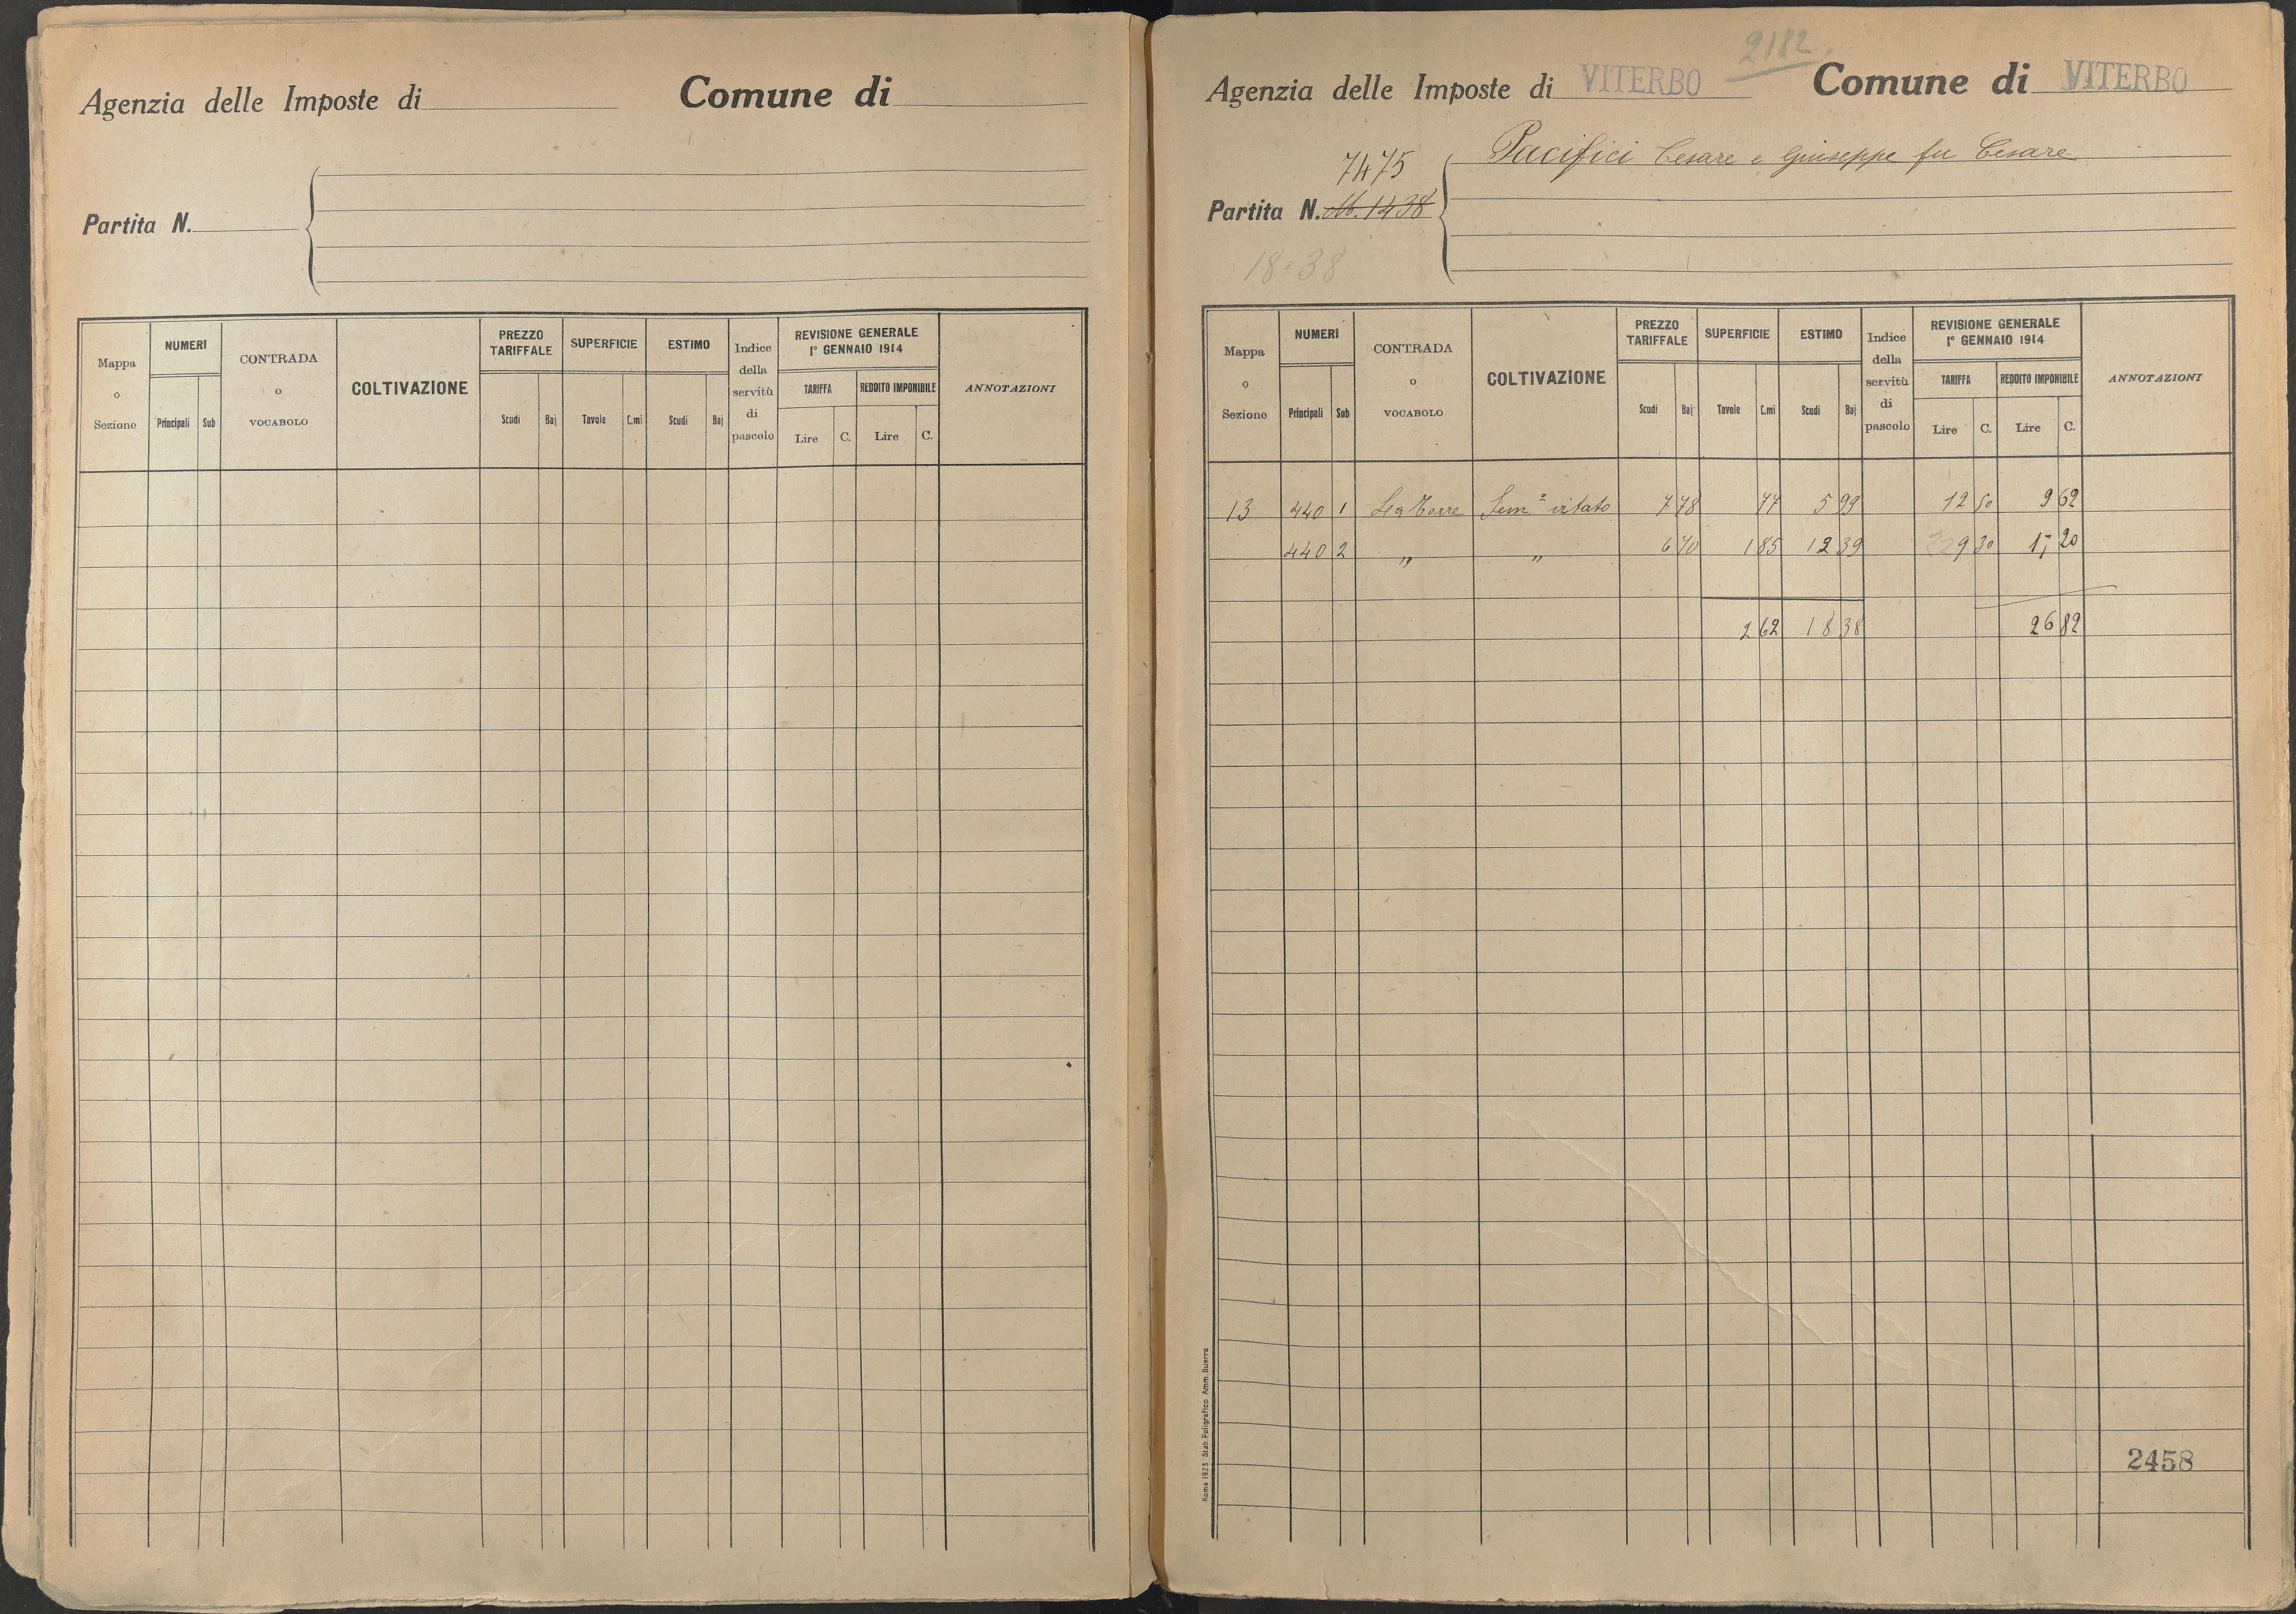 Agenzia delle Imposte di Comune di
Partita N.
Mappa o Sezione
NUMERI
Principali Sub
CONTRADA o VOCABOLO
COLTIVAZIONE
PREZZO TARIFFALE
Scudi Baj
SUPERFICIE
Tavole C.mi
ESTIMO
Scudi Baj
Indice della servitù di pascolo
REVISIONE GENERALE
1° GENNAIO 1914
TARIFFA
Lire C.
REDDITO IMPONIBILE
Lire C.
ANNOTAZIONI
2182
Agenzia delle Imposte di VITERBO Comune di VITERBO
Pacifici Cesare e Giuseppe fu Cesare
7475
Partita N. M. 1438
18=38
Mappa o Sezione
NUMERI
Principali Sub
CONTRADA o VOCABOLO
COLTIVAZIONE
PREZZO TARIFFALE
Scudi Baj
SUPERFICIE
Tavole C.mi
ESTIMO
Scudi Baj
Indice della servitù di pascolo
REVISIONE GENERALE
1° GENNAIO 1914
TARIFFA
Lire C.
REDDITO IMPONIBILE
Lire C.
ANNOTAZIONI
13 440 1 La Torre Sem.° vitato 7 78 77 5 99 12 50 9 62
440 2 " " 6 70 1 85 12 39 9 30 17 20
2 62 18 38 26 82
Roma 1923 Stab. Poligrafico Amm. Guerra
2458